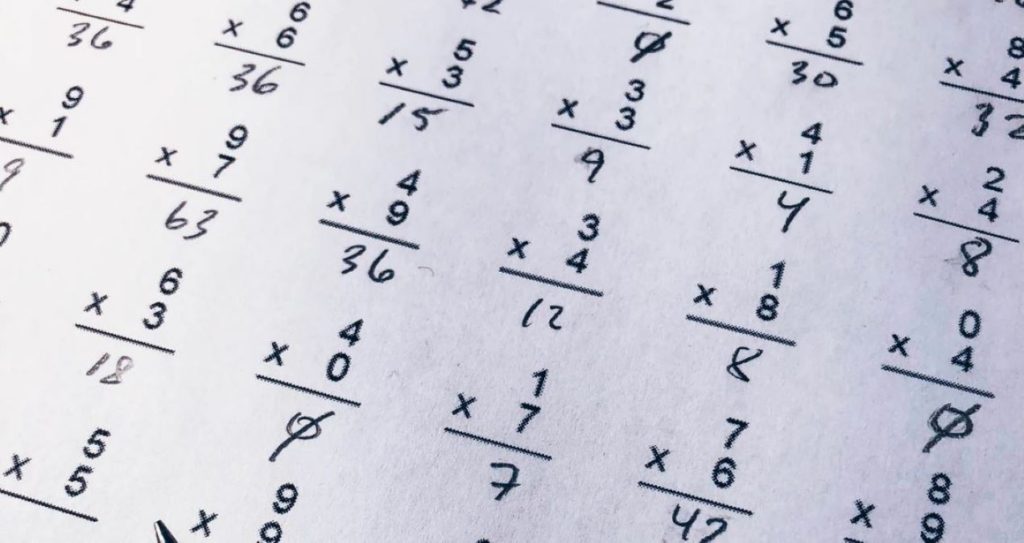 4
36
6
× 6
36
5
× 3
15
2
0
6
× 5
30
8
× 4
32
9
× 1
9
9
× 7
63
4
× 9
36
3
× 3
9
4
× 1
4
2
× 4
8
6
× 3
18
4
× 0
0
3
× 4
12
1
× 8
8
0
× 4
0
5
× 5
9
× 9
1
× 7
7
7
× 6
42
8
× 9